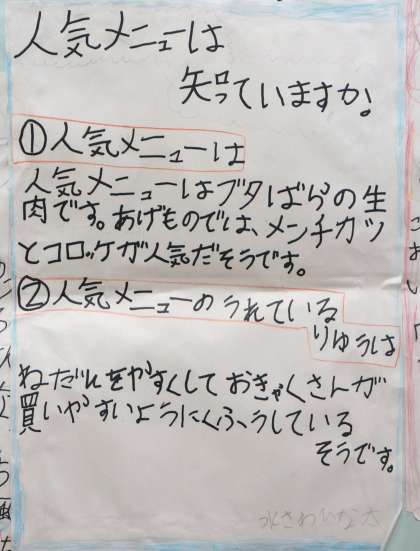 人気メニューは
知っていますか!
①人気メニューは
人気メニューはブタばらの生
肉です。あげものでは、メンチカツ
とコロッケが人気だそうです。
②人気メニューのうれている
りゆうは
ねだんをやすくしておきゃくさんが
買いやすいようにくふうしている
そうです。